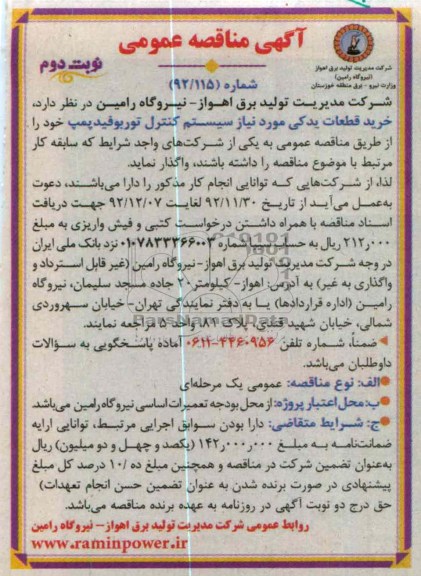 آگهی مناقصه عمومی
نوبت دوم
شرکت مدیریت تولید برق اهواز
(نیروگاه رامین)
وزارت نیرو - برق منطقه خوزستان
شماره (۹۲/۱۱۵)
شرکت مدیریت تولید برق اهواز- نیروگاه رامین در نظر دارد،
خرید قطعات یدکی مورد نیاز سیستم کنترل توربوفیدپمپ خود را
از طریق مناقصه عمومی به یکی از شرکت‌های واجد شرایط که سابقه کار
مرتبط با موضوع مناقصه را داشته باشند، واگذار نماید.
لذا، از شرکت‌هایی که توانایی انجام کار مذکور را دارا می‌باشند، دعوت
به‌عمل می‌آید از تاریخ ۹۲/۱۱/۳۰ لغایت ۹۲/۱۲/۰۷ جهت دریافت
اسناد مناقصه با همراه داشتن درخواست کتبی و فیش واریزی به مبلغ
۲۱۲٫۰۰۰ ریال به حساب سیبا شماره ۰۱۰۷۸۳۳۳۶۶۰۰۳ نزد بانک ملی ایران
در وجه شرکت مدیریت تولید برق اهواز- نیروگاه رامین (غیر قابل استرداد و
واگذاری به غیر) به آدرس: اهواز- کیلومتر ۲۰ جاده مسجد سلیمان، نیروگاه
رامین (اداره قراردادها) یا به دفتر نمایندگی تهران- خیابان سهروردی
شمالی، خیابان شهید قندی، پلاک ۸۶ واحد ۵ مراجعه نمایند.
ضمناً، شماره تلفن ۴۴۶۰۹۵۶-۰۶۱۱ آماده پاسخگویی به سؤالات
داوطلبان می‌باشد.
الف: نوع مناقصه: عمومی یک مرحله‌ای
ب: محل اعتبار پروژه: از محل بودجه تعمیرات اساسی نیروگاه رامین می‌باشد.
ج: شرایط متقاضی: دارا بودن سوابق اجرایی مرتبط، توانایی ارایه
ضمانت‌نامه به مبلغ ۱۴۲٫۰۰۰٫۰۰۰ (یکصد و چهل و دو میلیون) ریال
به‌عنوان تضمین شرکت در مناقصه و همچنین مبلغ ده /۱۰ درصد کل مبلغ
پیشنهادی در صورت برنده شدن به عنوان تضمین حسن انجام تعهدات)
حق درج دو نوبت آگهی در روزنامه به عهده برنده مناقصه می‌باشد.
روابط عمومی شرکت مدیریت تولید برق اهواز- نیروگاه رامین
www.raminpower.ir